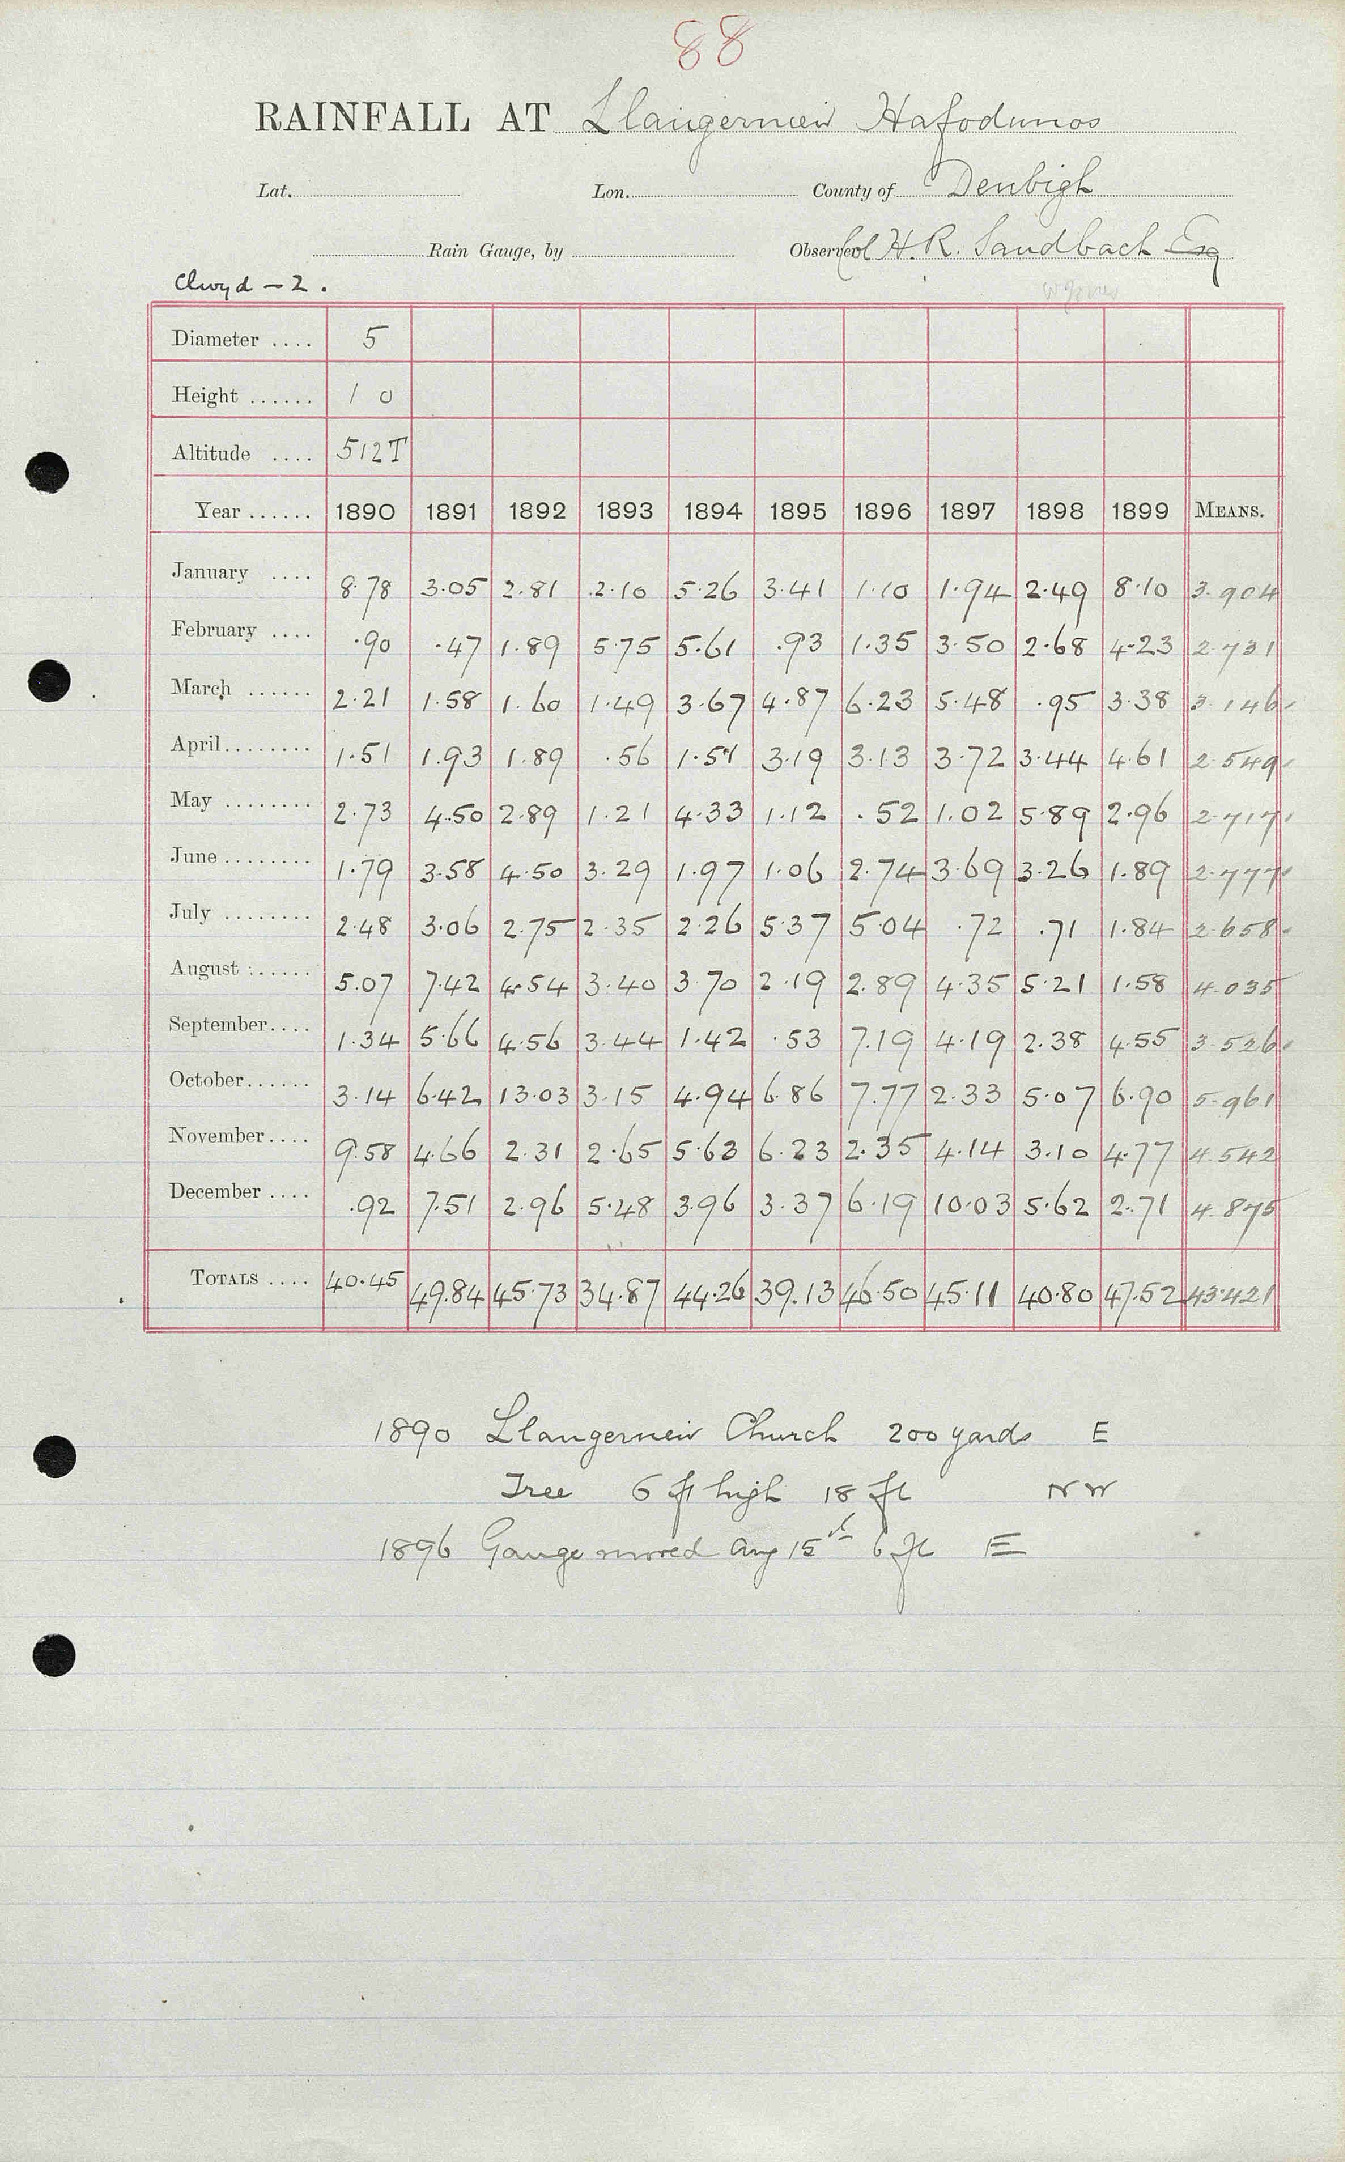 88
RAINFALL AT Llangerniew Hafodunos
Lat. Lon. County of Denbigh
Rain Gauge, by Observer Col H. R. Sandbach Esq
Clwyd - 2. W Jones
Diameter .... 5
Height ...... 1 0
Altitude .... 512T
Year ...... 1890 1891 1892 1893 1894 1895 1896 1897 1898 1899 MEANS.
January .... 8.78 3.05 2.81 2.10 5.26 3.41 1.10 1.94 2.49 8.10 3.904
February .... .90 .47 1.89 5.75 5.61 .93 1.35 3.50 2.68 4.23 2.731
March ...... 2.21 1.58 1.60 1.49 3.67 4.87 6.23 5.48 .95 3.38 3.146
April ........ 1.51 1.93 1.89 .56 1.51 3.19 3.13 3.72 3.44 4.61 2.549
May ........ 2.73 4.50 2.89 1.21 4.33 1.12 .52 1.02 5.89 2.96 2.717
June ........ 1.79 3.58 4.50 3.29 1.97 1.06 2.74 3.69 3.26 1.89 2.777
July ........ 2.48 3.06 2.75 2.35 2.26 5.37 5.04 .72 .71 1.84 2.658
August ...... 5.07 7.42 4.54 3.40 3.70 2.19 2.89 4.35 5.21 1.58 4.035
September.... 1.34 5.66 4.56 3.44 1.42 .53 7.19 4.19 2.38 4.55 3.526
October...... 3.14 6.42 13.03 3.15 4.94 6.86 7.77 2.33 5.07 6.90 5.961
November.... 9.58 4.66 2.31 2.65 5.63 6.23 2.35 4.14 3.10 4.77 4.542
December .... .92 7.51 2.96 5.48 3.96 3.37 6.19 10.03 5.62 2.71 4.875
TOTALS .... 40.45 49.84 45.73 34.87 44.26 39.13 46.50 45.11 40.80 47.52 43.421
1890 Llangerniew Church 200 yards E
Tree 6 ft high 18 ft NW
1896 Gauge moved Aug 15th 6 ft E